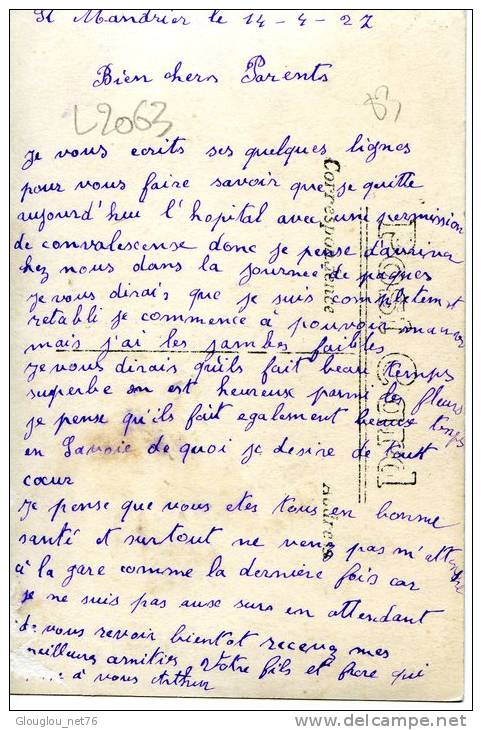 St Mandrier le 14-4-27
Bien chers Parents
L2063
83
Je vous ecrits ses quelques lignes
pour vous faire savoir que je quitte
aujourd'hui l'hopital avec une permission
de convalescense donc je pense d'arriver
chez nous dans la journee de paques
Je vous dirais que je suis completement
retabli je commence à pouvoir
mais j'ai les jambes faibles
Je vous dirais qu'ils fait beau temps
superbe on est heureux parmi les fleurs
je pense qu'ils fait egalement beaux temps
en Savoie de quoi je desire de tout
cœur
Je pense que vous etes tous en bonne
santé et surtout ne venez pas m'attendre
à la gare comme la dernière fois car
je ne suis pas aux surs en attendant
de vous revoir bientot recevez mes
meilleurs amitiés Votre fils et frere qui
à vous Arthur
Post Card
Correspondence
Address
Glouglou_net76
delcampe.net